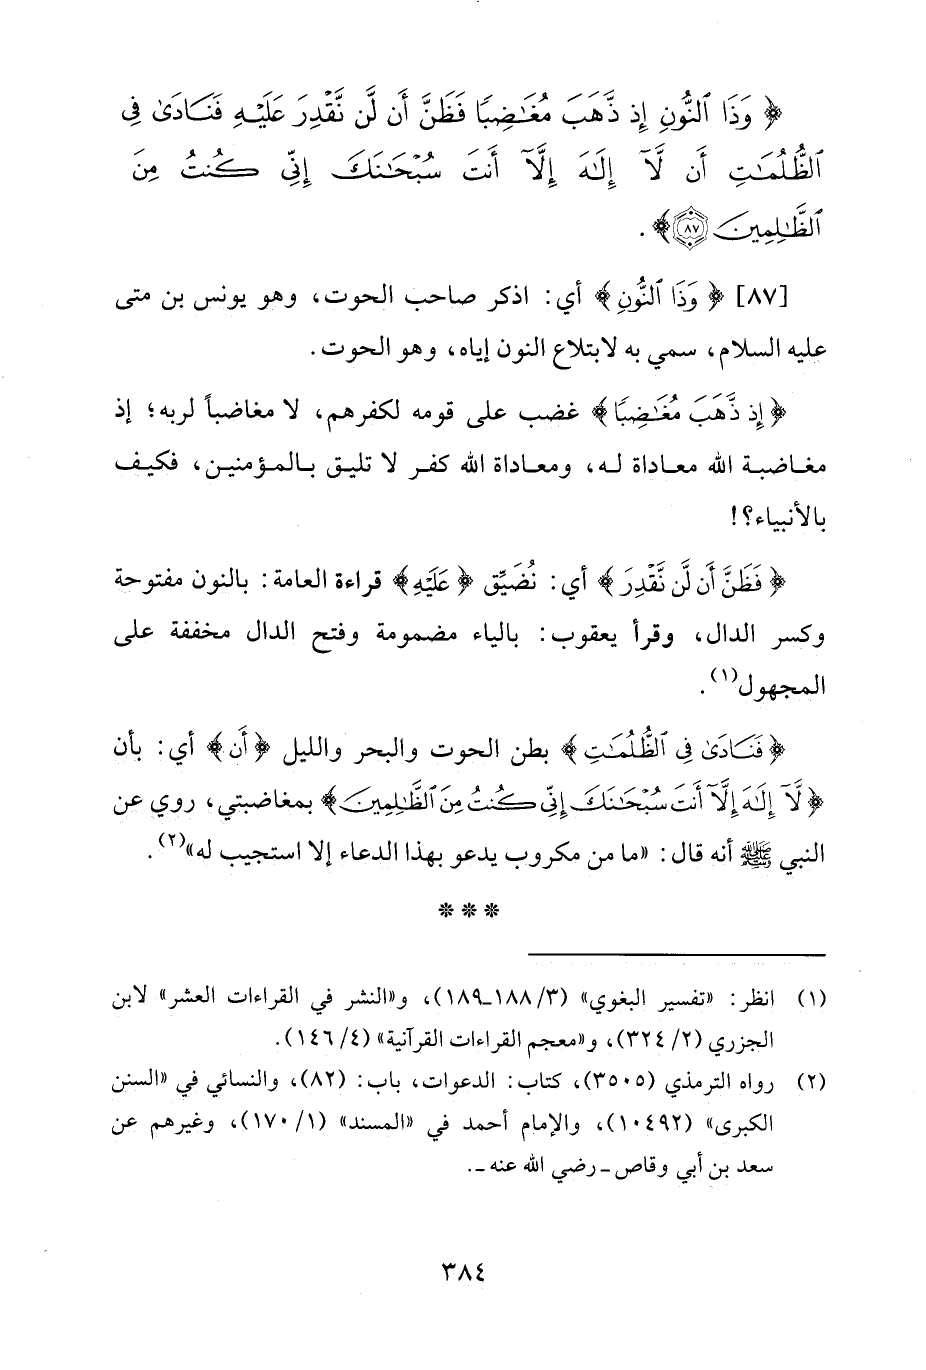 ﴿ وَذَا ٱلنُّونِ إِذ ذَّهَبَ مُغَـٰضِبًا فَظَنَّ أَن لَّن نَّقْدِرَ عَلَيْهِ فَنَادَىٰ فِى
ٱلظُّلُمَـٰتِ أَن لَّآ إِلَـٰهَ إِلَّآ أَنتَ سُبْحَـٰنَكَ إِنِّى كُنتُ مِنَ
ٱلظَّـٰلِمِينَ ٨٧ ﴾ .
[٨٧] ﴿ وَذَا ٱلنُّونِ ﴾ أي: اذكر صاحب الحوت، وهو يونس بن متى
عليه السلام، سمي به لابتلاع النون إياه، وهو الحوت.
﴿ إِذ ذَّهَبَ مُغَـٰضِبًا ﴾ غضب على قومه لكفرهم، لا مغاضباً لربه؛ إذ
مغاضبة الله معاداة له، ومعاداة الله كفر لا تليق بالمؤمنين، فكيف
بالأنبياء؟!
﴿ فَظَنَّ أَن لَّن نَّقْدِرَ ﴾ أي: نُضَيِّق ﴿ عَلَيْهِ ﴾ قراءة العامة: بالنون مفتوحة
وكسر الدال، وقرأ يعقوب: بالياء مضمومة وفتح الدال مخففة على
المجهول(١).
﴿ فَنَادَىٰ فِى ٱلظُّلُمَـٰتِ ﴾ بطن الحوت والبحر والليل ﴿ أَن ﴾ أي: بأن
﴿ لَّآ إِلَـٰهَ إِلَّآ أَنتَ سُبْحَـٰنَكَ إِنِّى كُنتُ مِنَ ٱلظَّـٰلِمِينَ ﴾ بمغاضبتي، روي عن
النبي ﷺ أنه قال: «ما من مكروب يدعو بهذا الدعاء إلا استجيب له»(٢).
* * *
(١) انظر: «تفسير البغوي» (٣/ ١٨٨ـ١٨٩)، و«النشر في القراءات العشر» لابن
الجزري (٢/ ٣٢٤)، و«معجم القراءات القرآنية» (٤/ ١٤٦).
(٢) رواه الترمذي (٣٥٠٥)، كتاب: الدعوات، باب: (٨٢)، والنسائي في «السنن
الكبرى» (١٠٤٩٢)، والإمام أحمد في «المسند» (١/ ١٧٠)، وغيرهم عن
سعد بن أبي وقاص ـ رضي الله عنه ـ.
٣٨٤